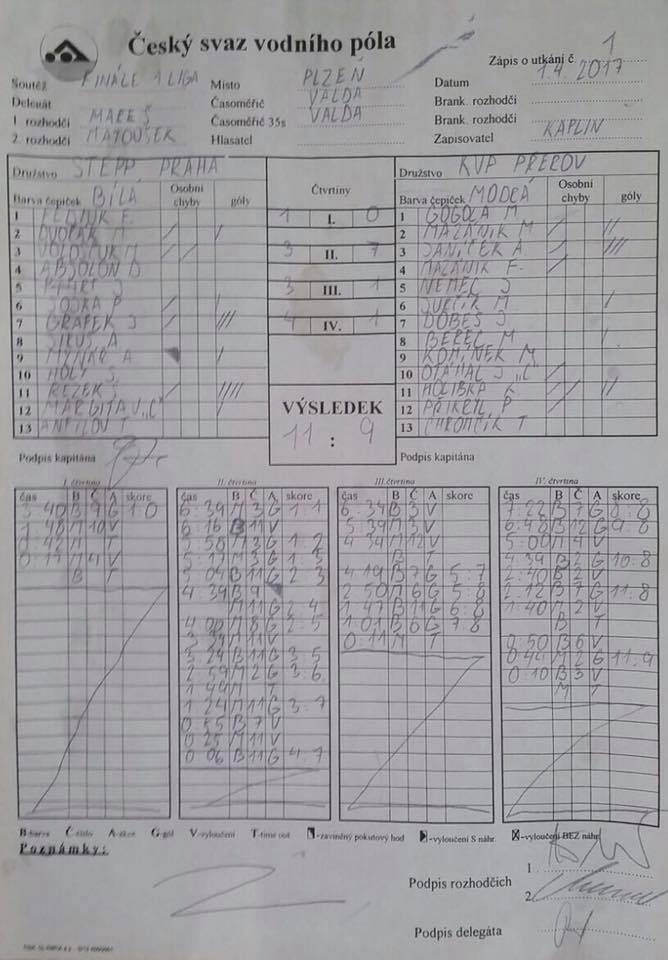 Český svaz vodního póla
Zápis o utkání č. 1
Soutěž FINÁLE 1 LIGA Místo PLZEŇ Datum 1.4.2017
Delegát Časoměřič VALDA Brank. rozhodčí
1 rozhodčí MAREŠ Časoměřič 35s VALDA Brank. rozhodčí
2. rozhodčí MATOUŠEK Hlasatel Zapisovatel KAPLIN
Družstvo STEPP PRAHA
Barva čepiček BÍLÁ Osobní chyby góly
1
2 DVOŘÁK M.
3
4 ABSOLON D
5
6 SOJKA P
7 GRAFEK J
8 SIRUS A
9 A
10 HOLÝ S.
11 ŘEZEK
12 MARGITA J. "C"
13 ANFILOV T
Podpis kapitána
Čtvrtiny
1 I. 0
3 II. 7
3 III. 1
4 IV. 1
VÝSLEDEK
11 : 9
Družstvo KVP PŘEROV
Barva čepiček MODRÁ Osobní chyby góly
1 GOGOLA M
2 MAZÁNIK M
3 JANÍČEK A.
4 MAZÁNIK F.
5 NĚMEC J
6 JURČÍK M
7 DOBEŠ J
8 BEREC M
9 KOMÍNEK M
10 OTÁHAL J "C"
11 HOLIBKA K
12 PŘIKRYL P
13 CHROMČÍK T
Podpis kapitána
I. čtvrtina
čas B Č A skore
3 40 B 9 G 1 0
1 48 M 10 V
0 42 M T
0 17 M 4 V
B T
II. čtvrtina
čas B Č A skore
6 39 M 3 G 1 1
6 16 B 11 V
5 50 M 3 G 1 2
5 17 M 3 G 1 3
5 04 B 11 G 2 3
4 39 B 9
M 11 G 2 4
4 00 M 8 G 2 5
3 34 M 11 V
3 24 B 11 G 3 5
2 59 M 2 G 3 6
1 44 M T
1 24 M 11 G 3 7
0 55 B 7 V
0 25 M 11 V
0 06 B 11 G 4 7
III. čtvrtina
čas B Č A skore
6 34 B 3 V
5 39 M 3 V
4 34 M 12 V
B T
4 19 B 7 G 5 7
2 50 M 6 G 5 8
1 47 B 11 G 6 8
1 01 B 6 G 7 8
0 11 M T
IV. čtvrtina
čas B Č A skore
7 22 B 7 G 8 8
6 48 B 12 G 9 8
5 00 M 4 V
4 39 B 2 G 10 8
2 40 B 2 V
2 12 B 7 G 11 8
1 40 M 2 V
B T
0 50 B 6 V
0 44 M 2 G 11 9
0 10 B 3 V
M T
B-barva Č-číslo A-akce G-gól V-vyloučení T-time out -zaviněný pokutový hod -vyloučení S náhr. -vyloučení BEZ náhr.
Poznámky:
Podpis rozhodčích 1
2.
Podpis delegáta